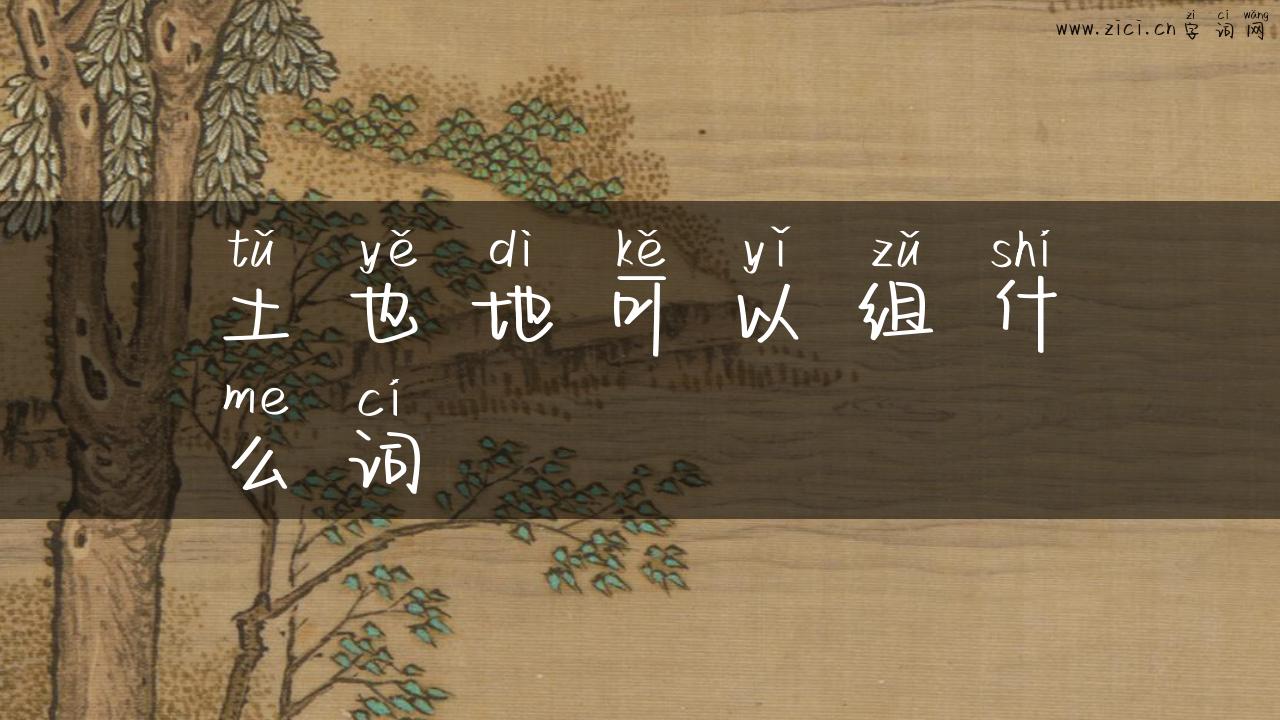 zì cí wǎng
www.zici.cn 字词网
tǔ yě dì kě yǐ zǔ shí
土也地可以组什
me cí
么词